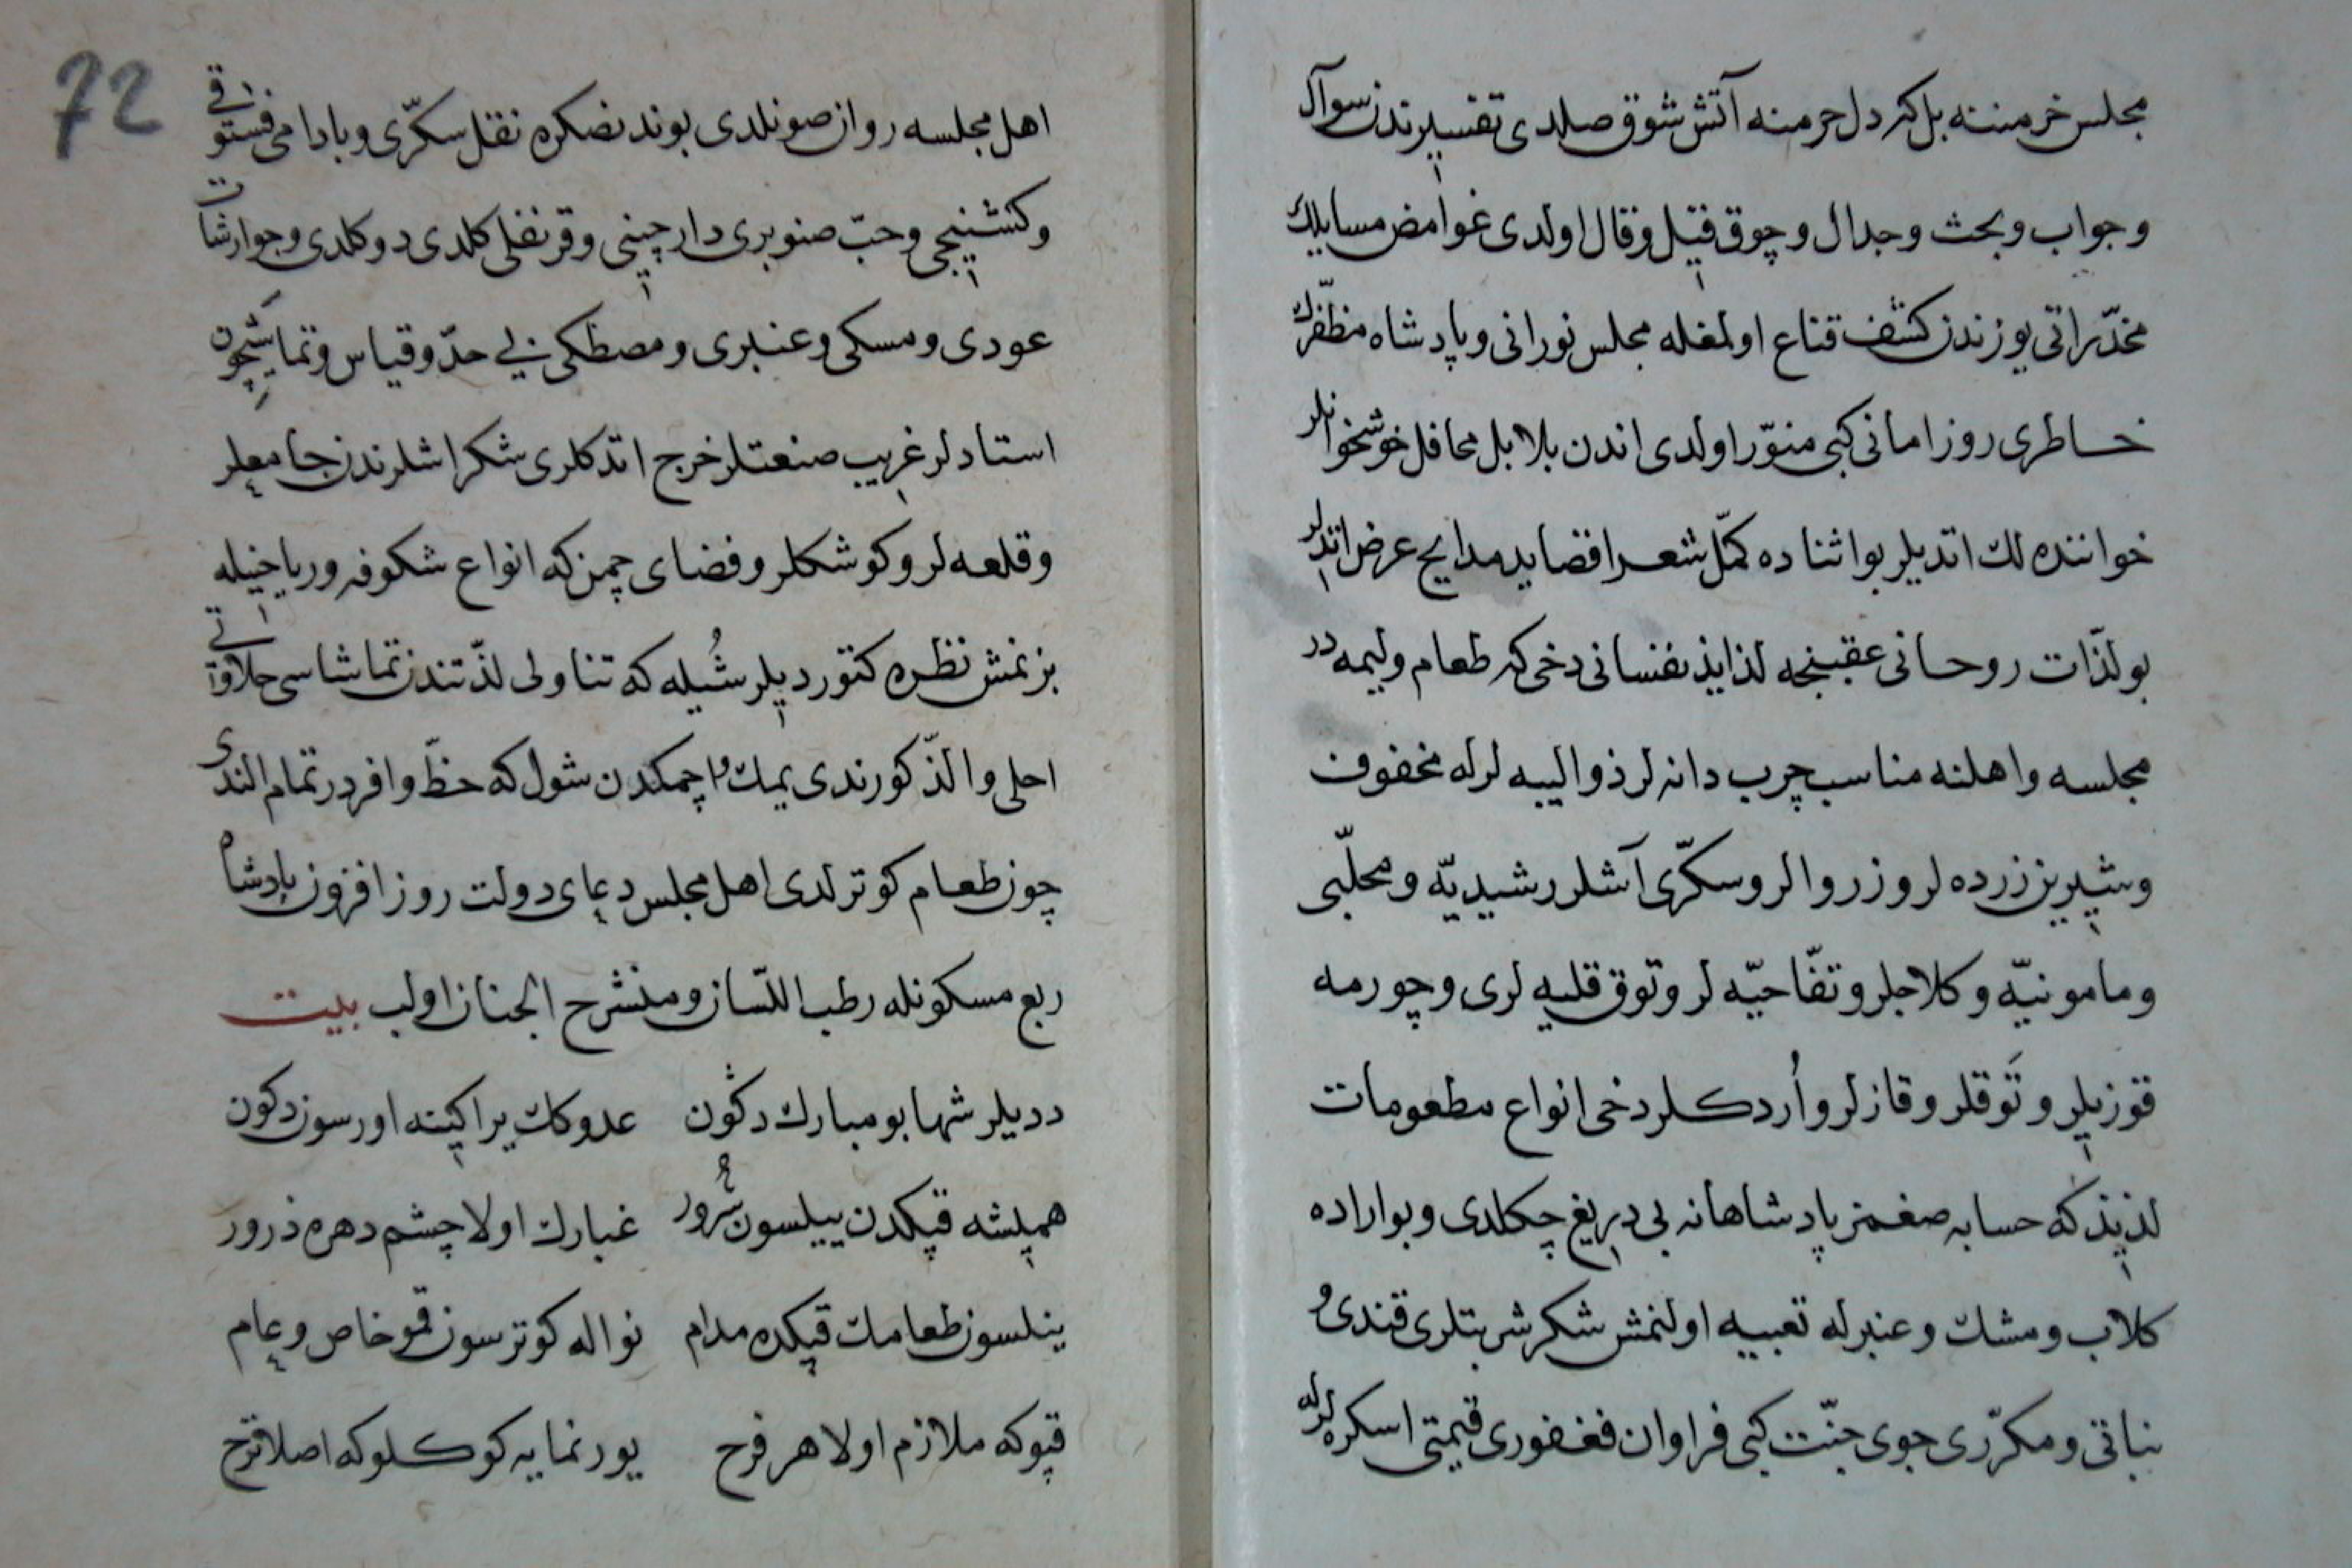 مجلس خرمننه بل كه دل حرمنه آتش شوق صلدى تفسيرندن سوآل
و جواب و بحث و جدال و چوق قيل و قال اولدى غوامض مسايلك
مخدّراتى يوزندن كشف قناع اولمغله مجلس نورانى و پادشاه مظفّرك
خاطرى روز امانى كبى منوّر اولدى اندن بلابل محافل خوشخوانلر
خواننده لك اتديلر بو اثناده كمّل شعرا قصايد مدايح عرض اتديلر
بو لذّات روحانى عقبنجه لذايذ نفسانى دخى كه طعام وليمه در
مجلسه و اهلنه مناسب چرب دانه لر ذو اليبه لرله محفوف
و شيرين زرده لر و زروالر و سكّرى آشلر رشيديّه و محلّبى
و مامونيّه و كلاجلر و تفّاحيّه لر و توق قليه لرى و چورمه
قوزيلر و تَوقلر و قازلر و اُردكلر دخى انواع مطعومات
لذيذ كه حسابه صغمز پادشاهانه بى دريغ چكلدى و بو اراده
كلاب و مشك و عنبرله تعبيه اولنمش شكر شربتلرى قندى و
نباتى و مكرّرى جوى جنّت كبى فراوان فغفورى قيمتى اسكره لرله
72
اهل مجلسه روان صونلدى بوندنصكره نقل سكّرى و بادامى فستوقى
و كشنيجى و حبّ صنوبرى دارچينى و قرنفلى كلدى دوكلدى و جوارشات
عودى و مسكى و عنبرى و مصطكى بى حدّ و قياس و تماشيچون
استادلر غريب صنعتلر خرج اتدكلرى شكر اشلرندن جامعلر
و قلعه لر و كوشكلر و فضاى چمن كه انواع شكوفه و رياحينله
بزنمش نظره كتورديلر شُيله كه تناولى لذّتندن تماشاسى حلاوتى
احلى و الذّ كورندى يمك و اچمكدن شول كه حظّ وافردر تمام الندى
چون طعام كوترلدى اهل مجلس دعاى دولت روز افزون پادشاه
ربع مسكونله رطب اللّسان و منشرح الجنان اولب بيت
دديلر شها بو مبارك دكُون عدوكك يراكينه اورسون دكون
هميشه قپكدن ييلسون سُرور غبارك اولا چشم دهره ذرور
ينلسون طعامك قپكده مدام نواله كوترسون قمو خاص و عام
قپوكه ملازم اولا هر فرح يوز نمايه كوكلوكه اصلا ترح